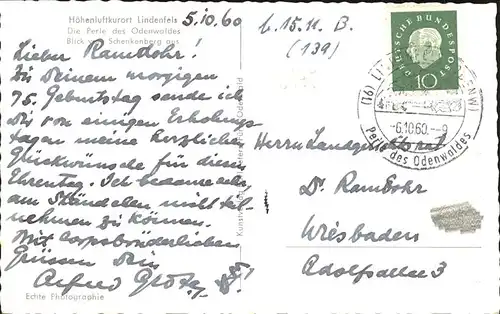 Höhenluftkurort Lindenfels
Die Perle des Odenwaldes
Blick vom Schenkenberg aus
5.10.60
Lieber Ramdohr!
Zu Deinem morgigen
75. Geburtstag sende ich
Dir von einigen Erholungs-
tagen meine herzlichen
Glückwünsche für diesen
Ehrentag. Ich bedaure sehr
am Ständchen nicht teil-
nehmen zu können.
Mit corpsbrüderlichen
Grüssen Dein
Alfred
Echte Photographie
b. 15.11. B.
(139)
DEUTSCHE BUNDESPOST
10
(16)
-6.10.60.-9
Perle des Odenwaldes
Herrn
Dr. Ramdohr
Wiesbaden
Adolfsallee 3